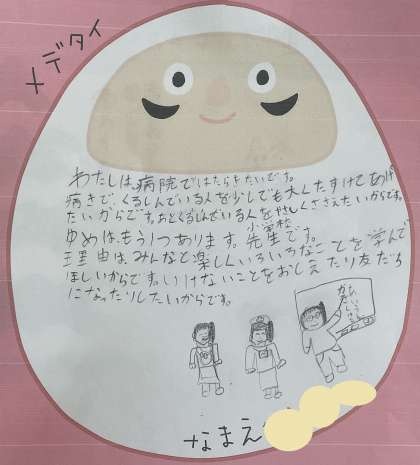 メデタイ
わたしは、病院ではたらきたいです。
病きで、くるしんでいる人を少しでも大くたすけてあげ
たいからです。あとくるしんでいる人をやさしくささえたいからです。
ゆめは、もう1つあります。小学校先生です。
理由は、みんなと楽しくいろいろなことを学んで
ほしいからです。いけないことをおしえたり友だち
になったりしたいからです。
なまえ